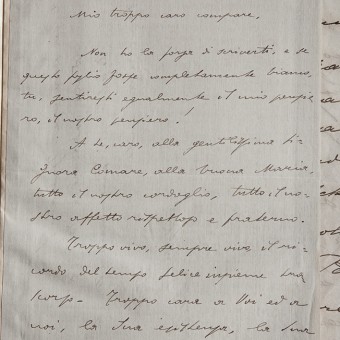 Mio troppo caro compare,
Non ho la forza di scriverti, e se
questo foglio fosse completamente bianco,
tu, sentiresti egualmente il mio pensie-
ro, il nostro pensiero!
A te, caro, alla gentilissima Si-
gnora Comare, alla buona Maria,
tutto il nostro cordoglio, tutto il no-
stro affetto rispettoso e fraterno.
Troppo vivo, sempre vivo il ri-
cordo del tempo felice insieme
Troppo cara a Voi ed a
noi, la Sua esistenza, la Sua